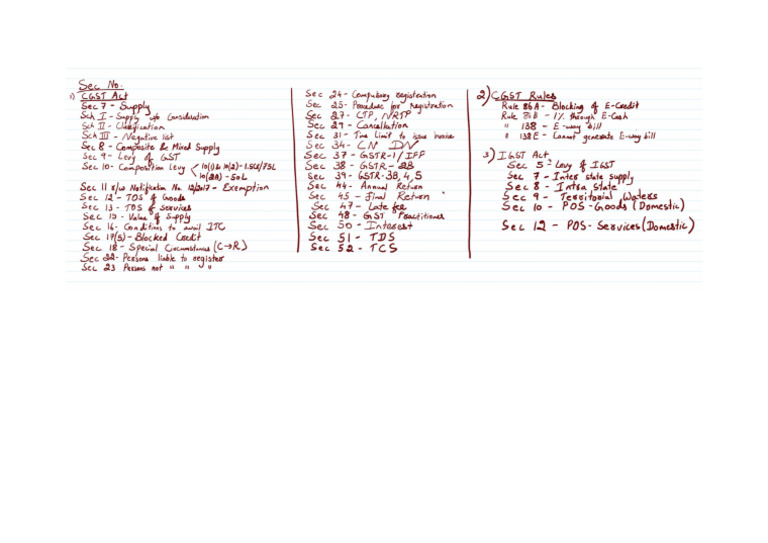 Sec No.
1) CGST Act
Sec 7 - Supply
Sch I - Supply w/o Consideration
Sch II - Classification
Sch III - Negative list
Sec 8 - Composite & Mixed Supply
Sec 9 - Levy of GST
Sec 10 - Composition Levy < 10(1) & 10(2) - 1.5Cr/75L
10(2A) - 50L
Sec 11 r/w Notification No. 12/2017 - Exemption
Sec 12 - TOS of Goods
Sec 13 - TOS of Services
Sec 15 - Value of Supply
Sec 16 - Conditions to avail ITC
Sec 17(5) - Blocked Credit
Sec 18 - Special Circumstances (C→R)
Sec 22 - Persons liable to register
Sec 23 Persons not " " "
Sec 24 - Compulsory registration
Sec 25 - Procedure for registration
Sec 27 - CTP, NRTP
Sec 29 - Cancellation
Sec 31 - Time Limit to issue invoice
Sec 34 - CN DN
Sec 37 - GSTR-1/IFF
Sec 38 - GSTR-2B
Sec 39 - GSTR-3B, 4, 5
Sec 44 - Annual Return
Sec 45 - Final Return
Sec 47 - Late fee
Sec 48 - GST Practitioner
Sec 50 - Interest
Sec 51 - TDS
Sec 52 - TCS
2) CGST Rules
Rule 86A - Blocking of E-Credit
Rule 86B - 1% through E-Cash
" 138 - E-way bill
" 138E - Cannot generate E-way bill
3) IGST Act
Sec 5 - Levy of IGST
Sec 7 - Inter state supply
Sec 8 - Intra state
Sec 9 - Territorial Waters
Sec 10 - POS - Goods (Domestic)
Sec 12 - POS - Services (Domestic)